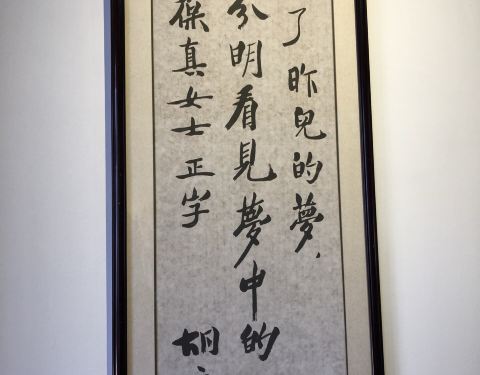 了昨兒的夢，
分明看見夢中的
葆真女士正字
胡